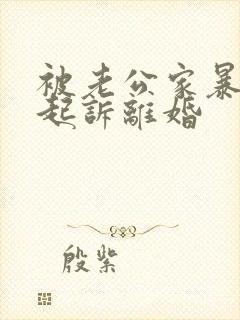 被老公家暴
起訴離婚
殷紫